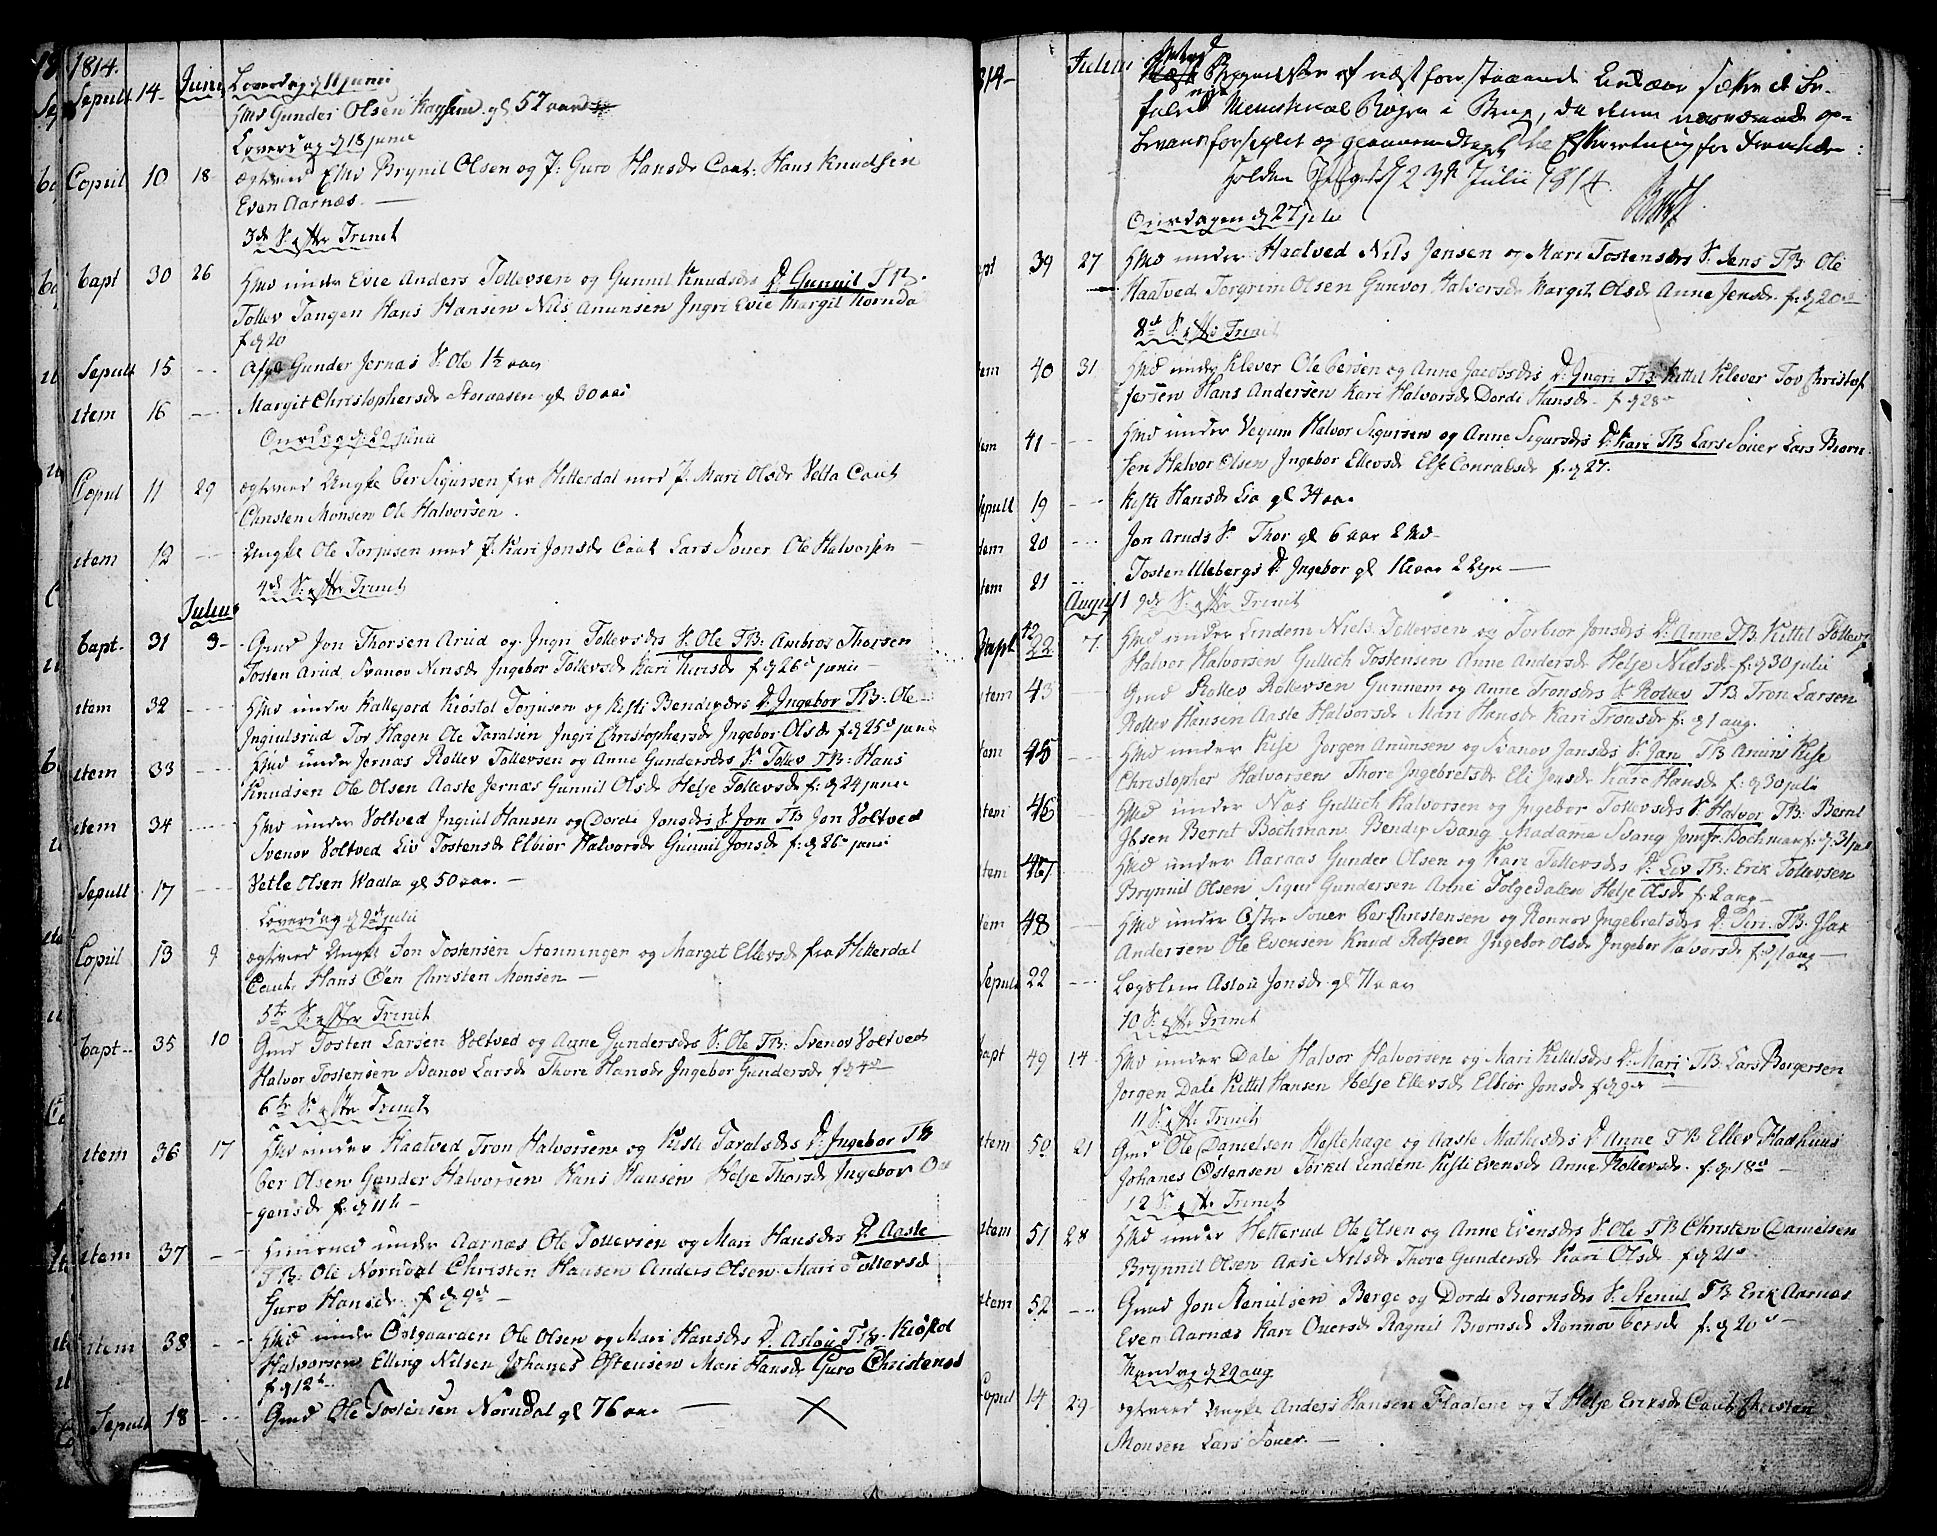 1814.
Sepult 14 Juni Løverdag d 11 Junii
Hmd Gunder Olsen gl 57 aar
Løverdag d 18 junii
Copul 10 18 Brynil Olsen og P. Guro Hansdr Caut: Hans Knudsen
Even Aarnæs
3de S. efter Trinit
bapt 30 26 Hmd under Evie Anders Tollevsen og Gunnil Knudsdr D: Gunnil TB.
Tollev Tangen Hans Hansen Nils Anunsen Ingri Evie Margit Norndal
f d 20
Sepult 15 -- Gunder Jernæs S. Ole 1½ aar
item 16 -- Margit Christophersdr gl 30 aar
Onsdag d: 29 junii
Copul 11 29 Ungkl Per Sigursen fra Hitterdal med P. Mari Olsdr Velta Caut
Christen Monsen Ole Halvorsen.
item 12 --- Ungkl Ole Torjusen med P. Kari Jonsdr Caut Lars Sauer Ole Halvorsen
4de S: efter Trinit
Julius
bapt. 31 3 Gmd Jon Thorsen Arud og Ingri Tollevsdr S. Ole TB: Ambros Thorsen
Tosten Arud Svanov Nirisdr Ingebor Tollevsdr Kari Thorsdr f d 26 junii
item 32 --- Hmd under Kallejord Kiøstol Torjusen og Kisti Bendixsdr D: Ingebor TB: Ole
Ingiulsrud Tor Hagen Ole Taralsen Ingri Christophersdr Ingebor Olsdr f d 25 junii
item 33 --- Hmd under Jernæs Rollev Tollevsen og Anne Gundersdr S: Tollev TB: Hans
Knudsen Ole Olsen Aaste Jernæs Gunnil Olsdr Helje Tollevsdr f: d 24 junii
item 34 --- Hmd under Voltved Ingiul Hansen og Dorde Jonsdr S Jon TB Jon Voltved
Svenov Voltved Liv Tostensdr Elbior Halvorsdr Gunnil Jonsdr f: d 26 junii
Sepult 17 --- Vetle Olsen Waala gl 50 aar. -
Løverdag d 9de julii
Copul 13 9 Ungkl Jon Tostensen Stenninger og Margit Ellevsdr fra Hitterdal
Caut: Hans Øen Christen Monsen -
5te S: efter Trinit
bapt 35 10 Gmd Tosten Larsen Voltved og Anne Gundersdr S: Ole TB: Svenov Voltved
Halvor Tostensen Svanov Larsdr Thore Hansdr Ingebor Gundersdr f d 4
6te S: efter Trinit
item 36 17 Hmd under Haatved Tron Halvorsen og Kisti Taralsdr D: Ingebor TB
Per Olsen Gunder Halvorsen Hans Hansen Helje Thorsdr Ingebor
gensdr f: d 11te
item 37 -- Huusmd under Aarnæs Ole Tollevsen og Mari Hansdr D: Aaste
TB: Ole Norndal Christen Hansen Anders Olsen Mari Tollevsd
Guro Hansdr f d 9de
item 38 -- Hmd under Østgaarden Ole Olsen og Mari Hansdr D. Aslou TB. Kiøstol
Halvorsen Elling Nilsen Johanes Østensen Mari Hansdr Guro Christensd
f d 12te
Sepult 18 --- Gmd Ole Tostensen Norndal gl 76 aar — X
Julii
Begyndelsen af næstforstaaende
nye Ministerial Boger i Brug, da denne nærværende op-
til Efterretning for Fremtiden:
Holden 23de Julii 1814.
Onsdagen d 27 julii
39 27 Hmd under Haatved Nils Jensen og Mari Tostensdr S. Jens TB: Ole
Haatved Torgrim Olsen Gunvor Halvorsdr Margit Olsdr Anne Jensdr f: d 20
8de S: efter Trinit
item 40 31 Hmd under Klever Ole Persen og Anne Jacobsdr D: Ingri TB: Kittil Klever Tov Christof
fersen Hans Andersen Kari Halvorsdr Dorde Hansdr f d 28
item 41 --- Hmd under Vegum Halvor Sigursen og Anne Sigursdr D: Kari TB Lars Sauer Lars Biørn
sen Halvor Olsen Ingebor Ellevsdr Else Conradsdr f: d 27.
Sepult 19 --- Kisti Hansdr Lia gl 34 aar
item 20 --- Jon Aruds S. Thor gl 6 aar 2 Md
item 21 .. Tosten Ulebergs D: Ingebor gl 22
August 9de S: efter Trinit
bapt 42 7 Hmd under Lindem Niels Tollevsen og Torbior Jonsdr D: Anne TB. Kittil Tollevs
Halvor Halvorsen Gullich Tostensen Anne Andersdr Helje Nielsdr f: d 30 julii
item 43 --- Gmd Rollev Rollevsen Gunnem og Anne Tronsdr S Rollev TB Tron Larsen
Rollev Hansen Aaste Halvorsdr Mari Hansdr Kari Tronsdr f: d 1 aug.
item 45 --- Hmd under Kise Jorgen Anunsen og Svanov Jansdr S: Jan TB Anun Kise
Christopher Halvorsen Thore Ingebretsdr Eli Jensdr Kari Hansdr f: d 30 juli
item 46 --- Hmd under Næs Gullich Halvorsen og Ingebor Tollevsdr S. Halvor TB: Bernt
Ibsen Bernt Bochman Bendix Bang Madame Bang Jomfr Bochman f: d 31 jul
item 47 --- Hmd under Aaraas Gunder Olsen og Kari Tollevsdr D: Liv TB: Erik Tollevsen
Brynnil Olsen Sigur Gundersen Anne Dolgedalen Helje Olsdr f: 2 aug -
item 48 --- Hmd under Østre Sauer Per Christensen og Ronnov Ingebretsdr D: Siri TB: Isak
Andersen Ole Evensen Knud Rolfsen Ingebor Olsdr Ingebor Halvorsdr f: d 1 aug
Sepult 22 --- Lægslem Aslou Jonsdr gl 71 aar
10 S: efter Trinit
bapt 49 14 Hmd under Dale Halvor Halvorsen og Mari Kittilsdr D: Mari TB: Lars Borgersen
Jorgen Dale Kittil Hansen Helje Ellevsdr Elbior Jonsdr f d 9
11 S: efter Trinit
item 50 21 Gmd Ole Danielsen Heftehage og Aaste Mathisdr D: Anne TB Ellev Fladhuus
Johanes Østensen Torkil Lindem Kisti Evensdr Anne Rollevsdr f: d 18
12 S. efter Trinit
item 51 28 Hmd under Hetterud Ole Olsen og Anne Evensdr S. Ole TB Christen Danielsen
Brynnil Olsen Aase Nilsdr Thore Gundersdr Kari Olsdr f d 21
item 52 --- Gmd Jon Stenulsen Berge og Dorde Biørnsdr S. Stenul TB Erik Aarnæs
Even Aarnæs Kari Oversdr Ragnil Biørnsdr Ronnov Persdr f: d 20
Mandag d 29 aug
Copul 14 29 Ungkl Anders Hansen Flaatene og P. Helje Eriksdr Caut Christen
Monsen Lars Sauer. -